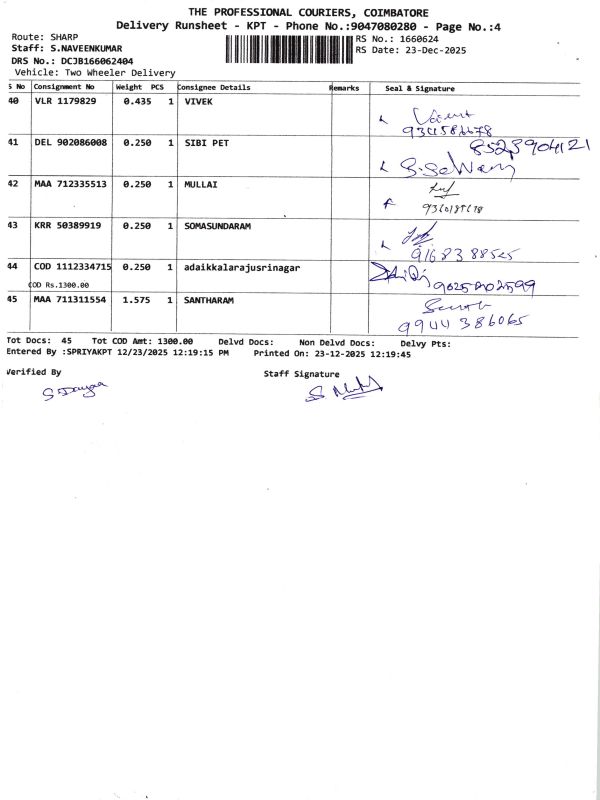 THE PROFESSIONAL COURIERS, COIMBATORE
Delivery Runsheet - KPT - Phone No.:9047080280 - Page No.:4
Route: SHARP
RS No.: 1660624
Staff: S.NAVEENKUMAR
RS Date: 23-Dec-2025
DRS No.: DCJB166062404
Vehicle: Two Wheeler Delivery
S No Consignment No Weight PCS Consignee Details Remarks Seal & Signature
40 VLR 1179829 0.435 1 VIVEK
41 DEL 902086008 0.250 1 SIBI PET
8523904121
42 MAA 712335513 0.250 1 MULLAI
43 KRR 50389919 0.250 1 SOMASUNDARAM
9168388525
44 COD 1112334715 0.250 1 adaikkalarajusrinagar
COD Rs.1300.00
45 MAA 711311554 1.575 1 SANTHARAM
9944386065
Tot Docs: 45 Tot COD Amt: 1300.00 Delvd Docs: Non Delvd Docs: Delvy Pts:
Entered By :SPRIYAKPT 12/23/2025 12:19:15 PM Printed On: 23-12-2025 12:19:45
Verified By Staff Signature